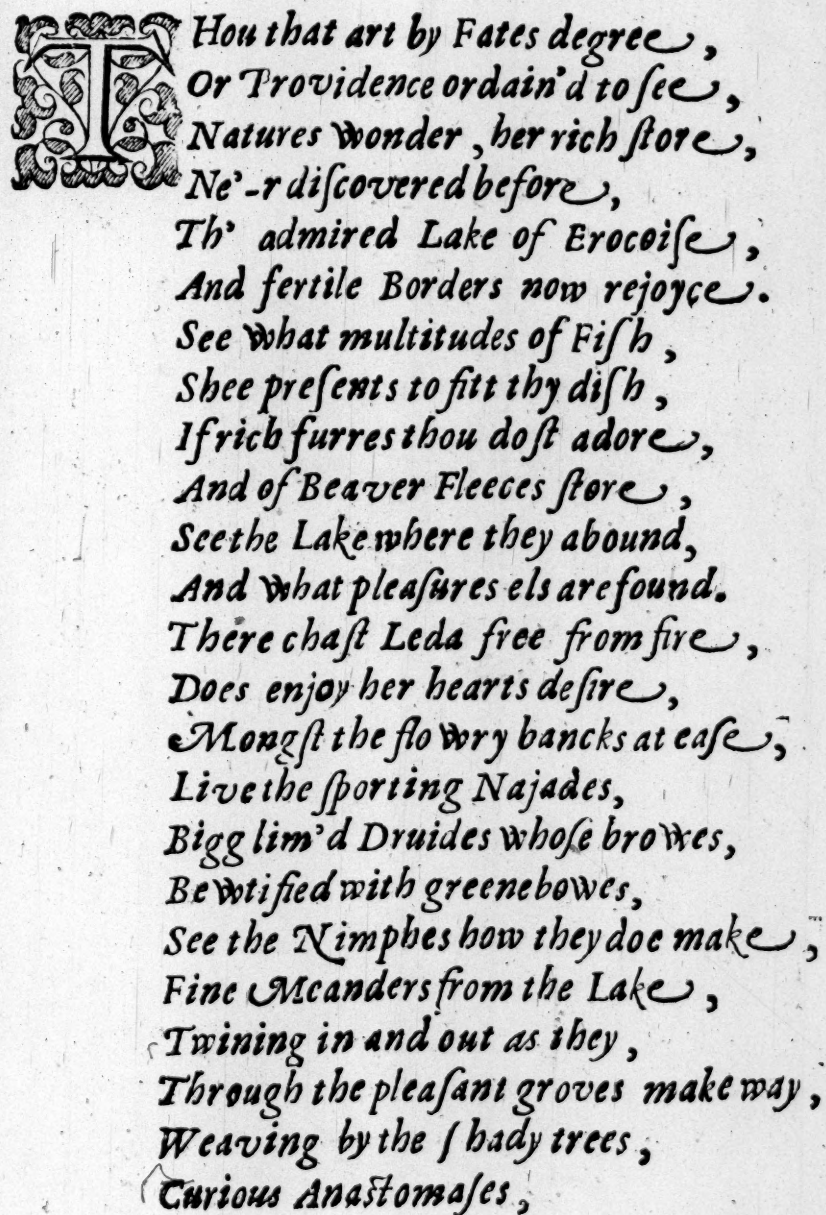 THou that art by Fates degree,
Or Providence ordain'd to ſee,
Natures wonder, her rich ſtore,
Ne'-r diſcovered before,
Th' admired Lake of Erocoiſe,
And fertile Borders now rejoyce.
See what multitudes of Fiſh,
Shee preſents to fitt thy diſh,
If rich furres thou doſt adore,
And of Beaver Fleeces ſtore,
See the Lake where they abound,
And what pleaſures els are found.
There chaſt Leda free from fire,
Does enjoy her hearts deſire,
Mongſt the flowry bancks at eaſe,
Live the ſporting Najades,
Bigg lim'd Druides whoſe browes,
Bewtified with greenebowes,
See the Nimphes how they doe make,
Fine Meanders from the Lake,
Twining in and out as they,
Through the pleaſant groves make way,
Weaving by the ſhady trees,
Curious Anaſtomaſes,